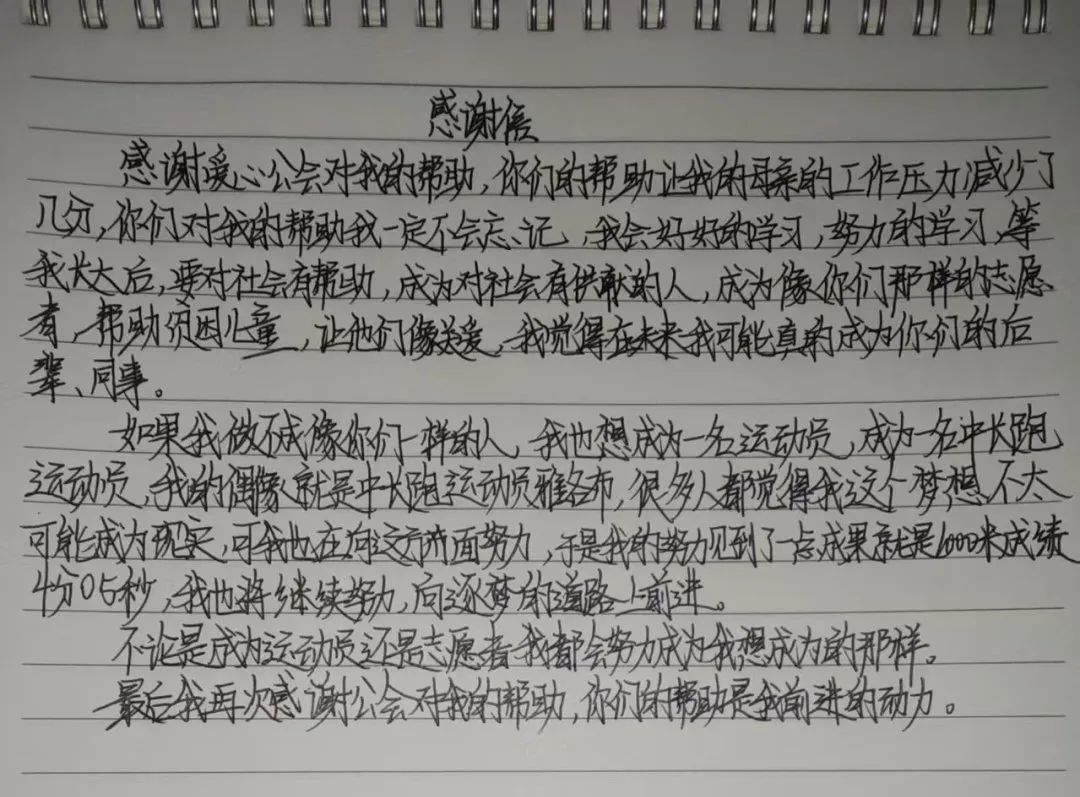 感谢信
感谢爱心公会对我的帮助，你们的帮助让我的母亲的工作压力减少了
几分，你们对我的帮助我一定不会忘记，我会好好的学习，努力的学习，等
我长大后，要对社会有帮助，成为对社会有供献的人，成为像你们那样的志愿
者，帮助贫困儿童，让他们像关爱，我觉得在未来我可能真的成为你们的后
辈、同事。
如果我做不成像你们一样的人，我也想成为一名运动员，成为一名中长跑
运动员，我的偶像就是中长跑运动员雅各布，很多人都觉得我这个梦想不太
可能成为现实，可我也在向这方面努力，于是我的努力见到了一点成果就是1000米成绩
4分05秒，我也将继续努力，向逐梦的道路上前进。
不论是成为运动员还是志愿者我都会努力成为我想成为的那样。
最后我再次感谢公会对我的帮助，你们的帮助是我前进的动力。